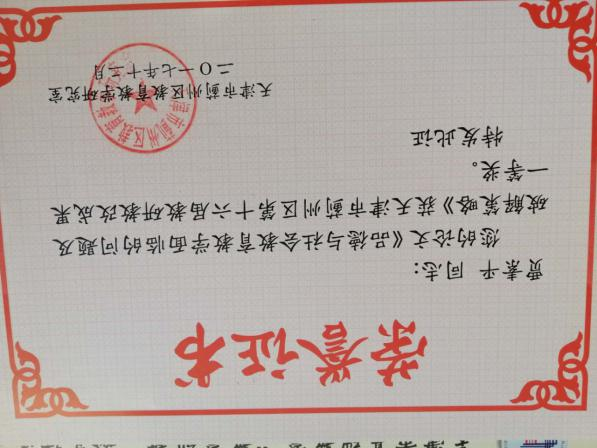 荣誉证书
贾素平 同志:
您的论文《品德与社会教育教学面临的问题及
破解策略》获天津市蓟州区第十六届教研教改成果
一等奖。
特发此证
天津市蓟州区教育教学研究室
二〇一七年十二月